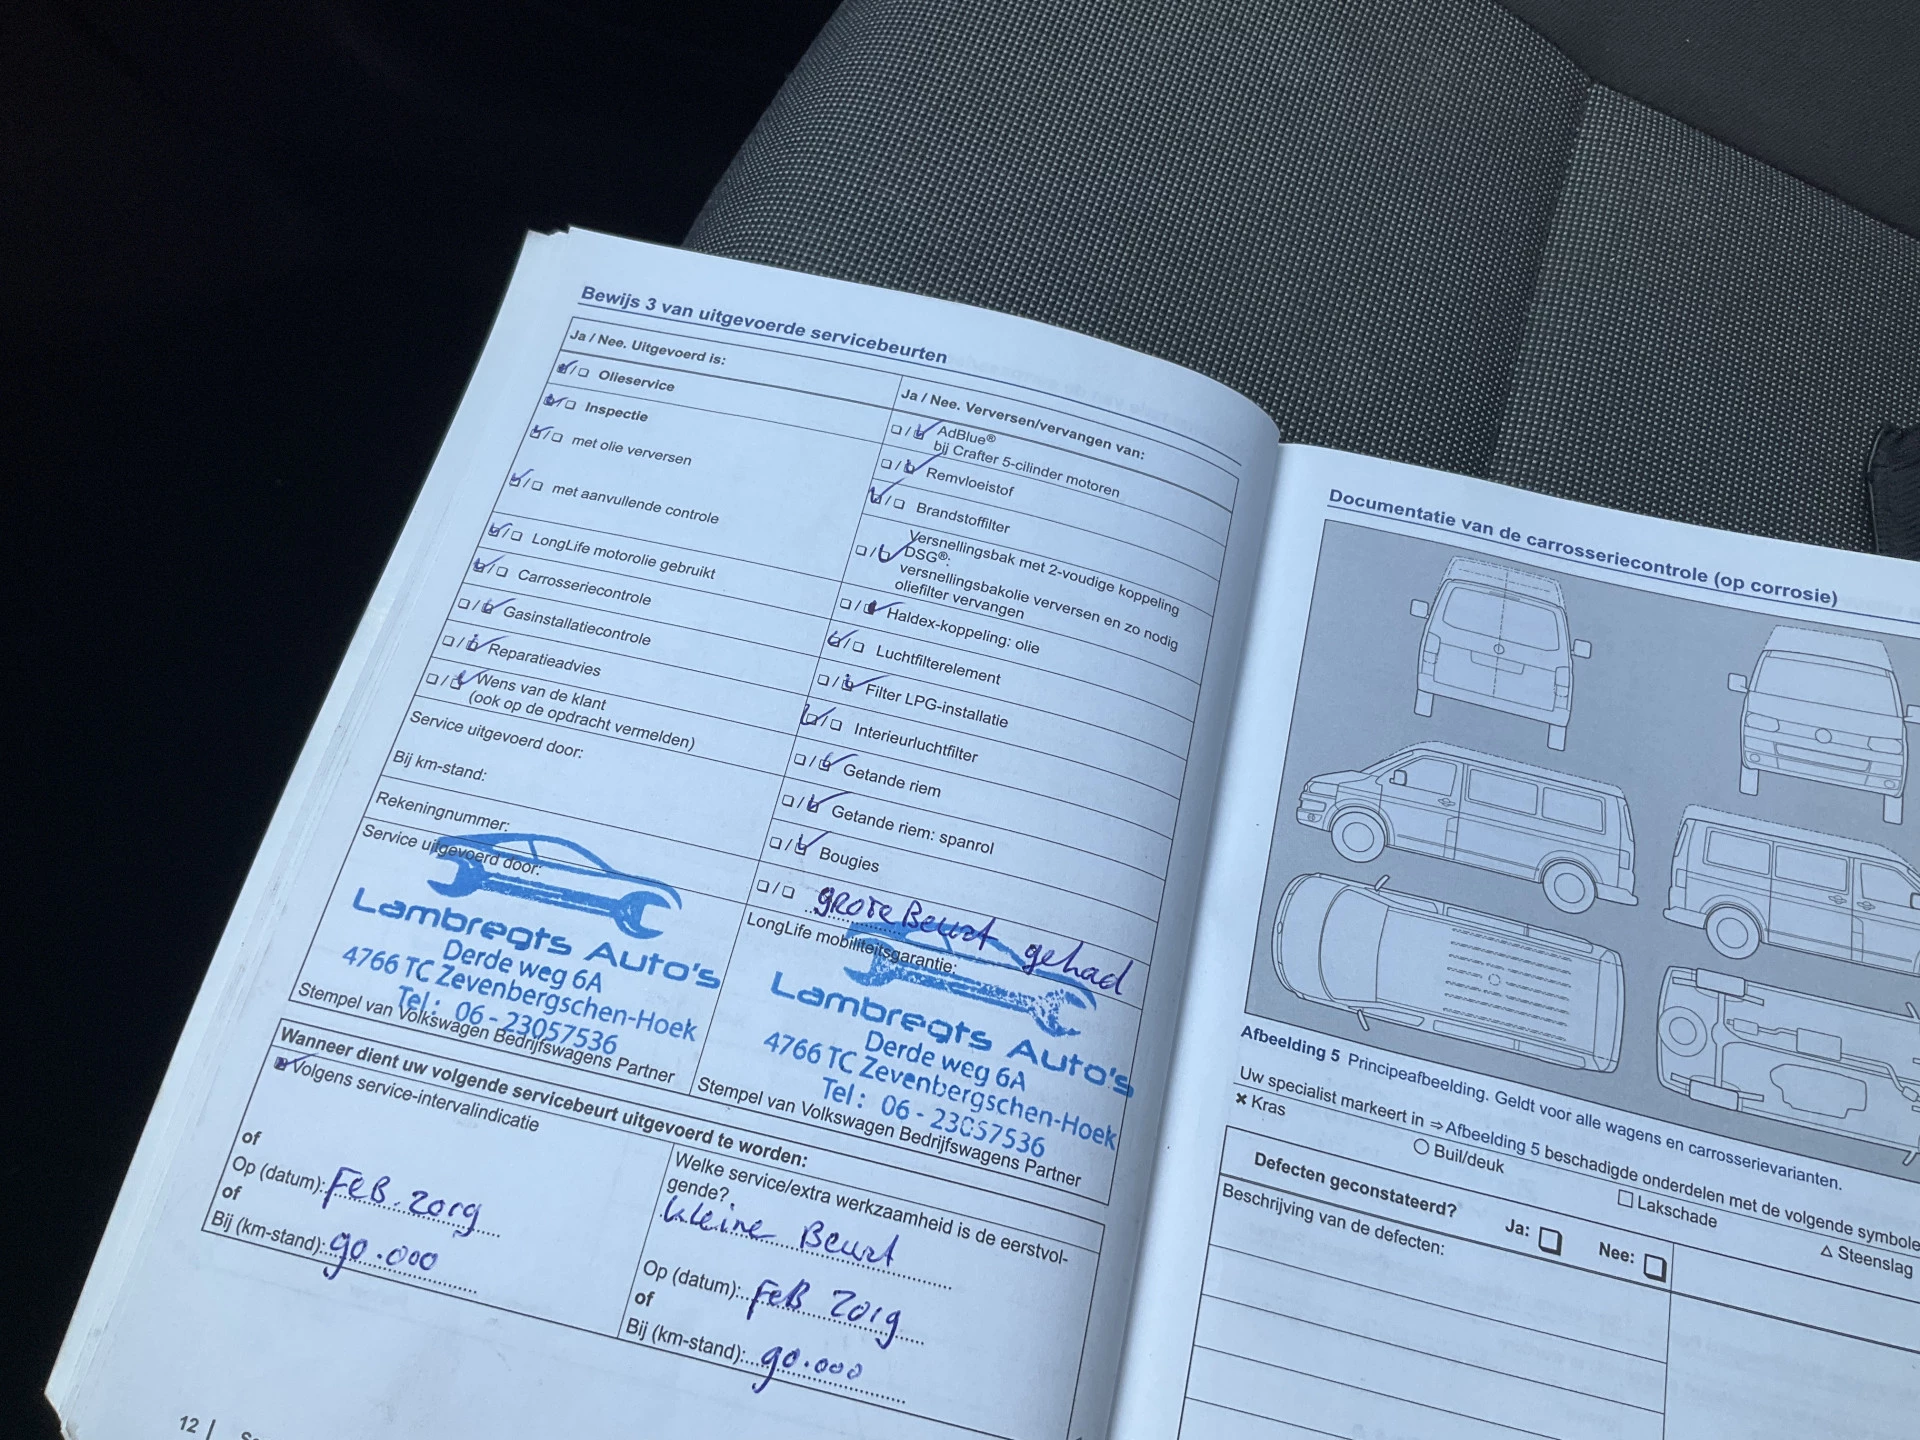 Bewijs 3 van uitgevoerde servicebeurten
Ja / Nee. Uitgevoerd is:
Olieservice
Inspectie
met olie verversen
met aanvullende controle
LongLife motorolie gebruikt
Carrosseriecontrole
Gasinstallatiecontrole
Reparatieadvies
Wens van de klant
(ook op de opdracht vermelden)
Service uitgevoerd door:
Bij km-stand:
Rekeningnummer:
Service uitgevoerd door:
Lambregts Auto's
Derde weg 6A
4766 TC Zevenbergschen-Hoek
Tel: 06 - 23057536
Stempel van Volkswagen Bedrijfswagens Partner
Ja / Nee. Verversen/vervangen van:
AdBlue®
bij Crafter 5-cilinder motoren
Remvloeistof
Brandstoffilter
Versnellingsbak met 2-voudige koppeling
DSG®:
versnellingsbakolie verversen en zo nodig
oliefilter vervangen
Haldex-koppeling: olie
Luchtfilterelement
Filter LPG-installatie
Interieurluchtfilter
Getande riem
Getande riem: spanrol
Bougies
grote Beurt gehad
LongLife mobiliteitsgarantie:
Lambregts Auto's
Derde weg 6A
4766 TC Zevenbergschen-Hoek
Tel: 06 - 23057536
Stempel van Volkswagen Bedrijfswagens Partner
Wanneer dient uw volgende servicebeurt uitgevoerd te worden:
Volgens service-intervalindicatie
of
Op (datum): FEB. 2019
of
Bij (km-stand): 90.000
Welke service/extra werkzaamheid is de eerstvol-
gende?
kleine Beurt
Op (datum): FEB 2019
of
Bij (km-stand): 90.000
12
Documentatie van de carrosseriecontrole (op corrosie)
Afbeelding 5 Principeafbeelding. Geldt voor alle wagens en carrosserievarianten.
Uw specialist markeert in ⇒ Afbeelding 5 beschadigde onderdelen met de volgende symbole
× Kras
○ Buil/deuk
□ Lakschade
△ Steenslag
Defecten geconstateerd?
Ja: □
Nee: □
Beschrijving van de defecten: